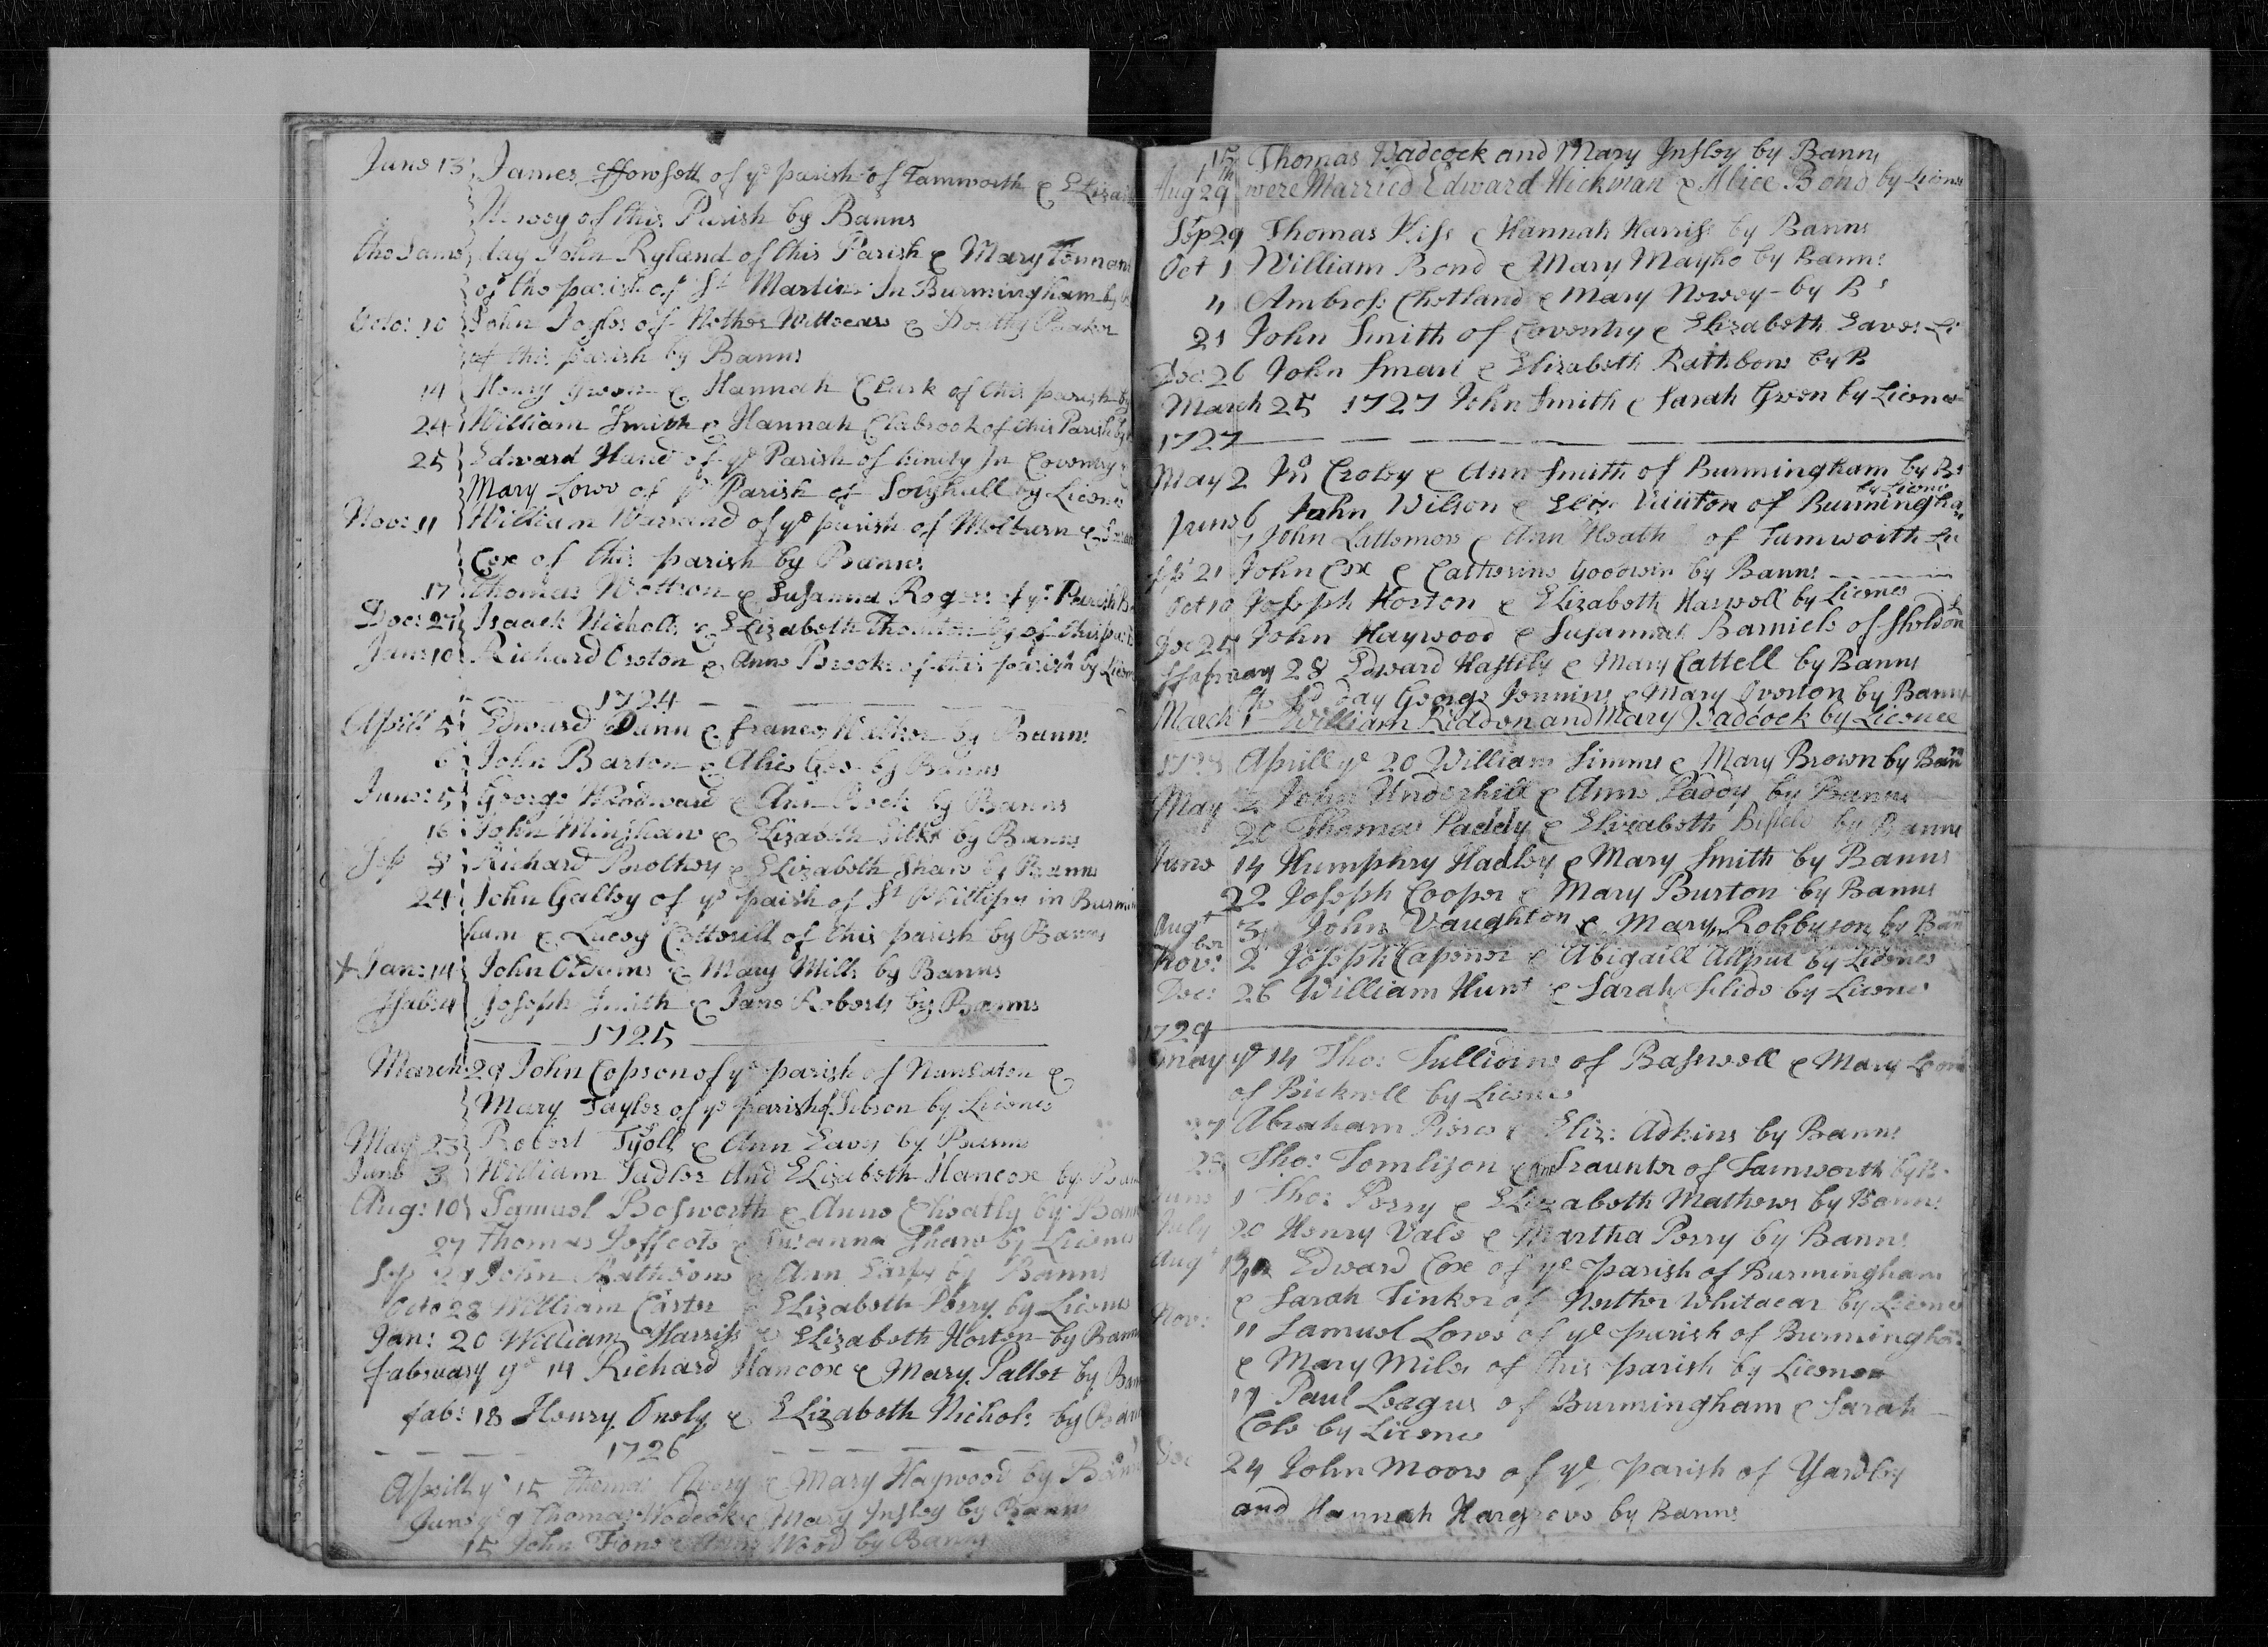 June 13 James ffowsett of ye parish of Tamworth & Eliza
Newey of this Parish by Banns
the same day John Ryland of this Parish & Mary Tonnan
of the parish of St Martins In Burmingham by
Octo: 10 John of Nether Dorothy
of this parish by Banns
14 Henry Green & Hannah Clark of this parish by
24 William Smith & Hannah Clabrook of this Parish by
25 Edward Hand of ye Parish of trinity In Coventry &
Mary Lowe of ye Parish of Solyhull by Licence
Nov: 11 William of ye parish of &
Cox of this parish by Banns
17 Thomas & Susanna Rogers of ye Parish
Dec: 27 Isaack Nicholls & Elizabeth of this
Jan: 10 Richard & Anne Brooks of this parish by Licence
1724
Aprill 5 Edward Dunn & frances by Banns
6 John Barton & Alice by Banns
June: 5 George Woodward & Ann by Banns
16 John Minshaw & Elizabeth by Banns
Sep 8 Richard & Elizabeth Shaw by Banns
24 John Galley of ye parish of St Phillips in Burmin
ham & Lucey Cotterill of this parish by Banns
Jan: 14 John Adams & Mary Mills by Banns
ffab: 4 Joseph Smith & Jane Roberts by Banns
1725
March 29 John Copson of ye parish of Nuneaton &
Mary Tayler of ye parish of Sibson by Licence
May 23 Robert & Ann Eaves by Banns
June 3 William Sadler And Elizabeth Hancox by Bann
Aug: 10 Samuel Bosworth & Anne by Bann
27 Thomas & Susanna Shaw by Licence
Sep John Rathbone & Ann by Banns
Octo 28 William Carter & Elizabeth Perry by Licence
Jan: 20 William Harriss & Elizabeth Horton by Bann
fabruary ye 14 Richard Hancox & Mary Pallet by Ban
fab: 18 Henry Onely & Elizabeth Nichols by Bann
1726
Aprill ye 15 Thomas Avery & Mary Haywood by Bann
June ye 9 Thomas Wadcock & Mary Insley by Banns
15 John & Wood by Banns
15 Thomas Wadcock and Mary Insley by Banns
Aug 29th were Married Edward Hickman & Alice Bond by Licence
Sep 29 Thomas & Hannah Harriss by Banns
Oct 1 William Bond & Mary Mayho by Banns
4 Ambross Chetland & Mary Newey by Bs
21 John Smith of Coventry & Elizabeth Eaves Li
Dec: 26 John Smart & Elizabeth Rathbone by B
March 25 1727 John Smith & Sarah Green by Licence
1727
May 2 Jno Croley & Ann Smith of Burmingham by Bs
by Licence
June 6 John Wilson & Eliz: of Burmingham
7 John Lattemore & Ann Heath of Tamworth Li
21 John Cox & Catherine Goodwin by Banns
Oct 10 Joseph Horton & Elizabeth Harwell by Licence
Dec 25 John Haywood & Susannah of Sheldon
ffabruary 28 Edward Hastily & Mary Cattell by Banns
ye sd day George Jennins & Mary Overton by Banns
March 1 William Riddon and Mary Wadcock by Licence
1728 Aprill ye 20 William Simms & Mary Brown by Bann
May 2 John Underhill & Anne Padoy by Banns
20 Thomas Paddy & Elizabeth by Banns
June 14 Humphry Hadley & Mary Smith by Banns
22 Joseph Cooper & Mary Burton by Banns
Augt 3 John Vaughton & Mary Robbyson by Bann
Novber 2 Joseph Capenor & Abigaill Allput by Licence
Dec: 26 William Hunt & Sarah by Licence
1729
may ye 14 Tho: of & Mary
of Bicknell by Licence
27 Abraham Pierce & Eliz: Adkins by Banns
28 Tho: Tomlison & Ann Traunter of Tamworth by B
June 1 Tho: Perry & Elizabeth Mathews by Banns
July 20 Henry Vale & Martha Perry by Banns
Augt Edward Cox of ye parish of Burmingham
& Sarah Tinker of Nether Whitacar by Licence
Nov: 11 Samuel Lowe of ye parish of Burmingham
& Mary Miles of this parish by Licence
17 Paul League of Burmingham & Sarah
Cole by Licence
Dec 24 John Moore of ye parish of Yardley
and Hannah Hargreve by Banns